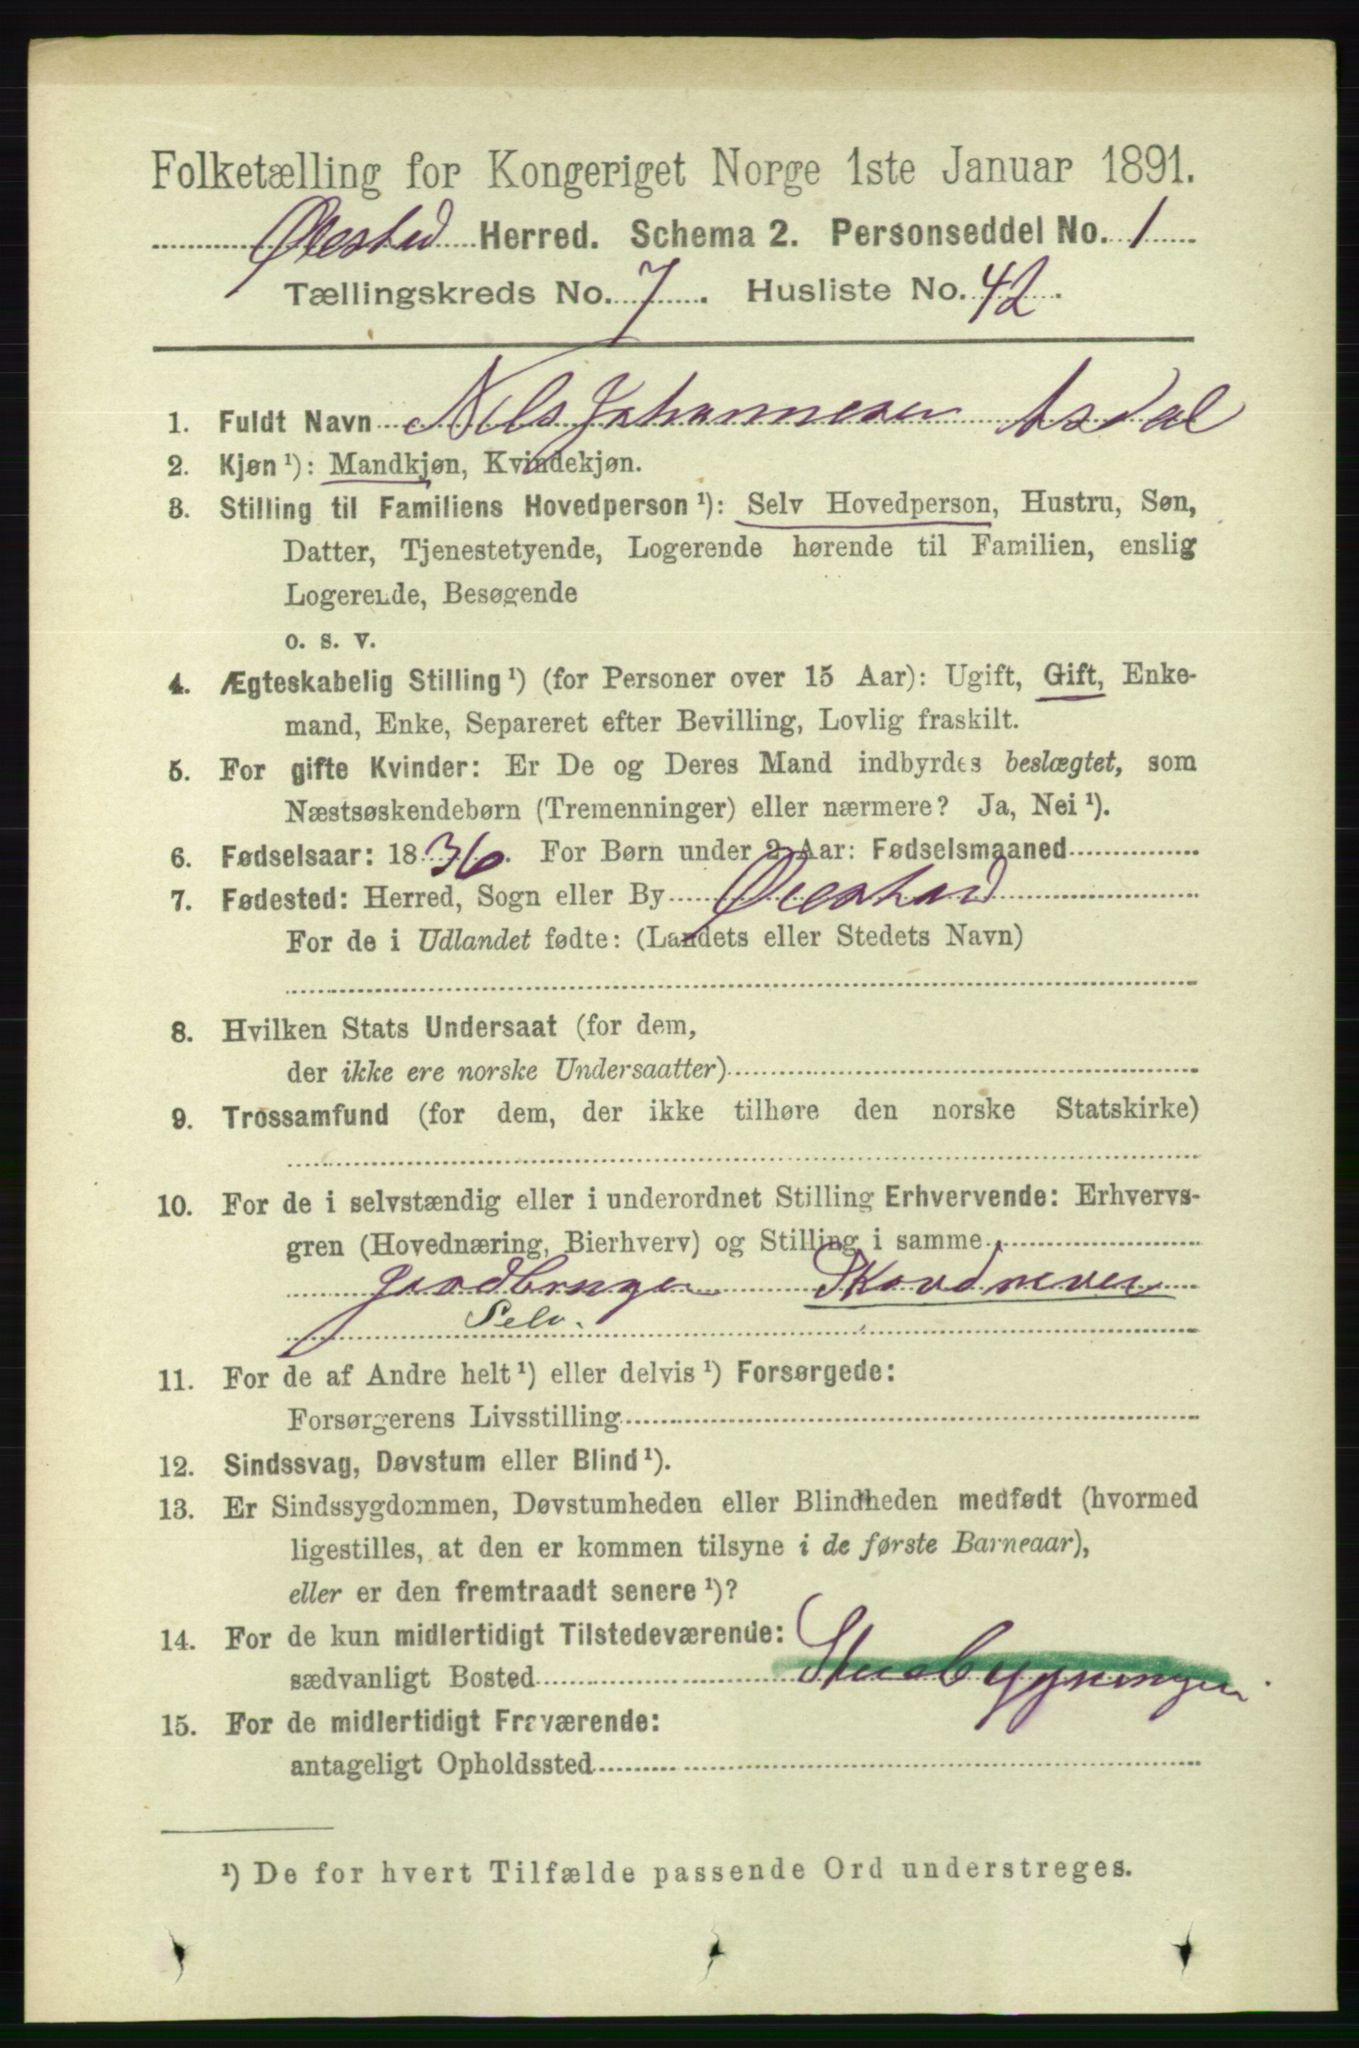 Folketælling for Kongeriget Norge 1ste Januar 1891.
Øiestad Herred. Schema 2. Personseddel No. 1
Tællingskreds No. 7. Husliste No. 42.
1. Fuldt Navn Nils Johannesen Asdal
2. Kjøn ¹): Mandkjøn, Kvindekjøn.
3. Stilling til Familiens Hovedperson ¹): Selv Hovedperson, Hustru, Søn,
Datter, Tjenestetyende, Logerende hørende til Familien, enslig
Logerende, Besøgende
o. s. v.
4. Ægteskabelig Stilling ¹) (for Personer over 15 Aar): Ugift, Gift, Enke-
mand, Enke, Separeret efter Bevilling, Lovlig fraskilt.
5. For gifte Kvinder: Er De og Deres Mand indbyrdes beslægtet, som
Næstsøskendebørn (Tremenninger) eller nærmere? Ja, Nei ¹).
6. Fødselsaar: 1836. For Børn under 2 Aar: Fødselsmaaned
7. Fødested: Herred, Sogn eller By Øiestad
For de i Udlandet fødte: (Landets eller Stedets Navn)
8. Hvilken Stats Undersaat (for dem,
der ikke ere norske Undersaatter)
9. Trossamfund (for dem, der ikke tilhøre den norske Statskirke)
10. For de i selvstændig eller i underordnet Stilling Erhvervende: Erhvervs-
gren (Hovednæring, Bierhverv) og Stilling i samme
Jordbruger Skovdriver
Selv.
11. For de af Andre helt ¹) eller delvis ¹) Forsørgede:
Forsørgerens Livsstilling
12. Sindssvag, Døvstum eller Blind ¹).
13. Er Sindssygdommen, Døvstumheden eller Blindheden medfødt (hvormed
ligestilles, at den er kommen tilsyne i de første Barneaar),
eller er den fremtraadt senere ¹)?
14. For de kun midlertidigt Tilstedeværende:
sædvanligt Bosted Stuebygningen.
15. For de midlertidigt Fraværende:
antageligt Opholdssted
¹) De for hvert Tilfælde passende Ord understreges.